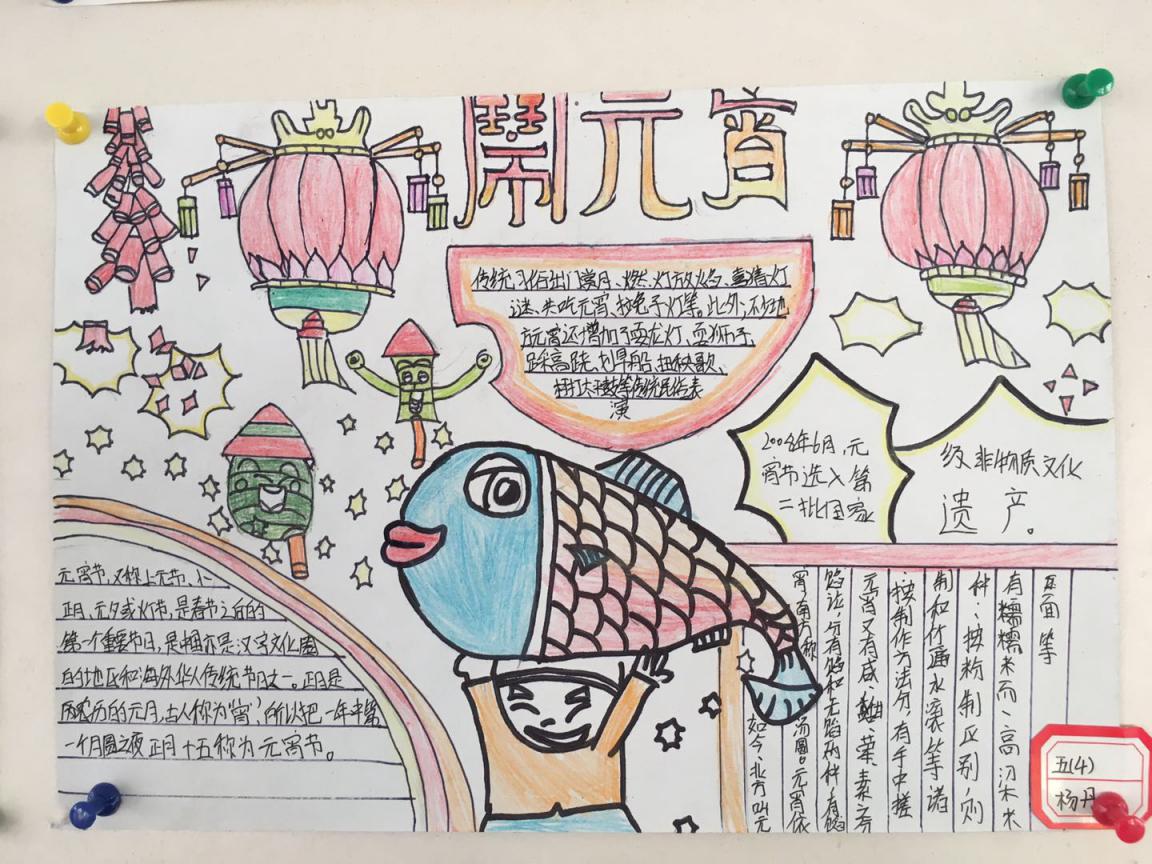 鬧元宵
传统习俗出门赏月、燃灯放焰、喜猜灯
谜、共吃元宵、拉兔子灯等。此外、不少地
方元宵还增加了耍龙灯、耍狮子、
踩高跷、划旱船、扭秧歌、
打太平鼓等传统民俗表
演
2008年6月,元
宵节选入第
二批国家
级非物质文化
遗产。
元宵节,又称上元节、小
正月、元夕或灯节,是春节之后的
第一个重要节日,是中国亦是汉字文化圈
的地区和海外华人传统节日之一。正月是
农历的元月,古人称为"宵",所以把一年中第
一个月圆之夜正月十五称为元宵节。
如今、北方叫元
宵,南方称汤圆。元宵依
馅论,分有馅和无馅两种,有馅
元宵又有咸、甜、荤、素之分
按制作方法分,有手中搓
制和竹匾水滚等诸
种;按粉制区别,则
有糯糯米面、高梁米
豆面等
五(4)
杨丹